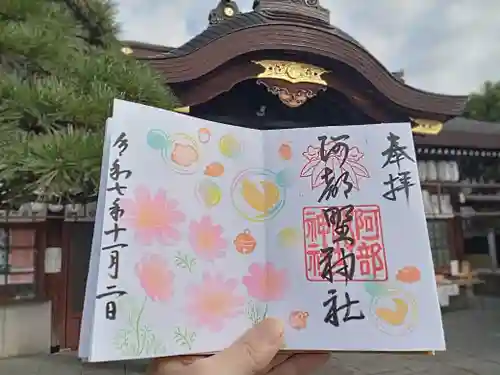 奉拝
阿部野神社
阿部野
神社
令和七年十一月二日